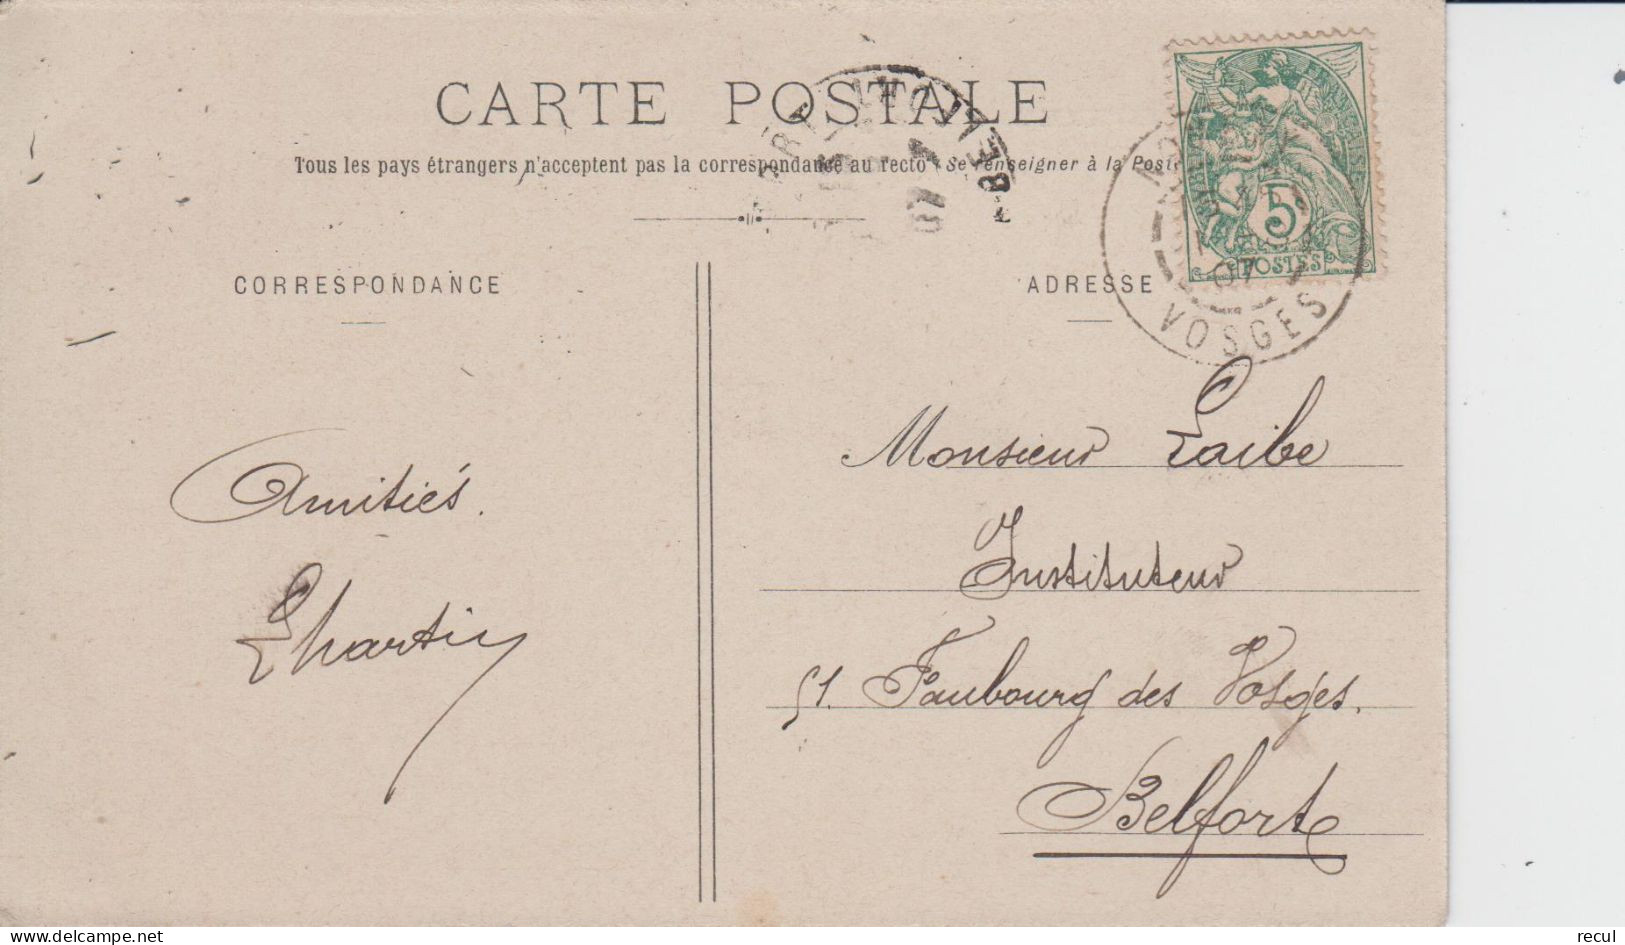 CARTE POSTALE
Tous les pays étrangers n'acceptent pas la correspondance au recto (Se renseigner à la Poste
CORRESPONDANCE
ADRESSE
5
POSTES
07
VOSGES
07
Amitiés.
Monsieur Laibe
Instituteur
51. Faubourg des Vosges.
Belfort
recul